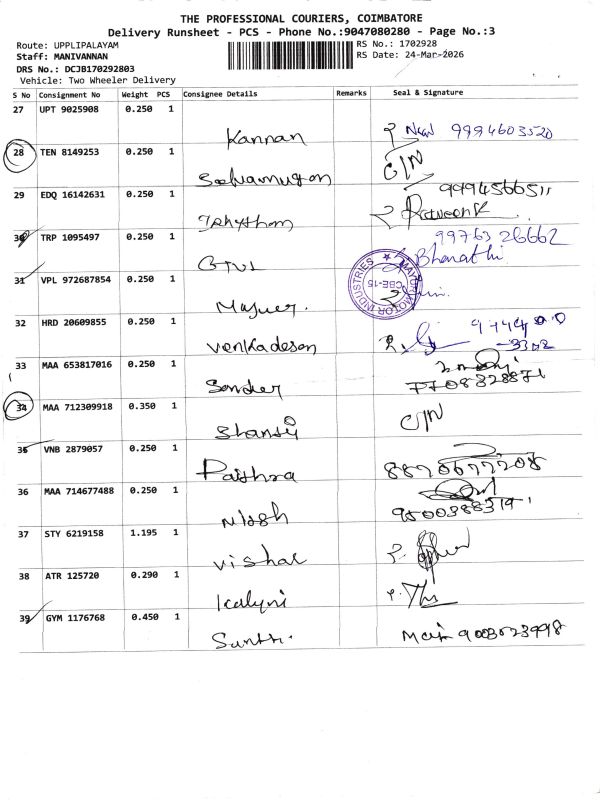 THE PROFESSIONAL COURIERS, COIMBATORE
Delivery Runsheet - PCS - Phone No.:9047080280 - Page No.:3
Route: UPPLIPALAYAM RS No.: 1702928
Staff: MANIVANNAN RS Date: 24-Mar-2026
DRS No.: DCJB170292803
Vehicle: Two Wheeler Delivery
S No Consignment No Weight PCS Consignee Details Remarks Seal & Signature
27 UPT 9025908 0.250 1
Kannan 9994603520
28 TEN 8149253 0.250 1
Selvamugan C/N
29 EDQ 16142631 0.250 1 9994566511
Praveen K
30 TRP 1095497 0.250 1 99763 26662
Bharathi
31 VPL 972687854 0.250 1
MOTOR INDUSTRIES CBE-15
32 HRD 20609855 0.250 1
Venkadesan
33 MAA 653817016 0.250 1
Sender 7708328871
34 MAA 712309918 0.350 1
Shansy C/N
35 VNB 2879057 0.250 1
Pavithra 8870677208
36 MAA 714677488 0.250 1
Nilosh
37 STY 6219158 1.195 1
Vishal
38 ATR 125720 0.290 1
Kalyni
39 GYM 1176768 0.450 1
9003523998